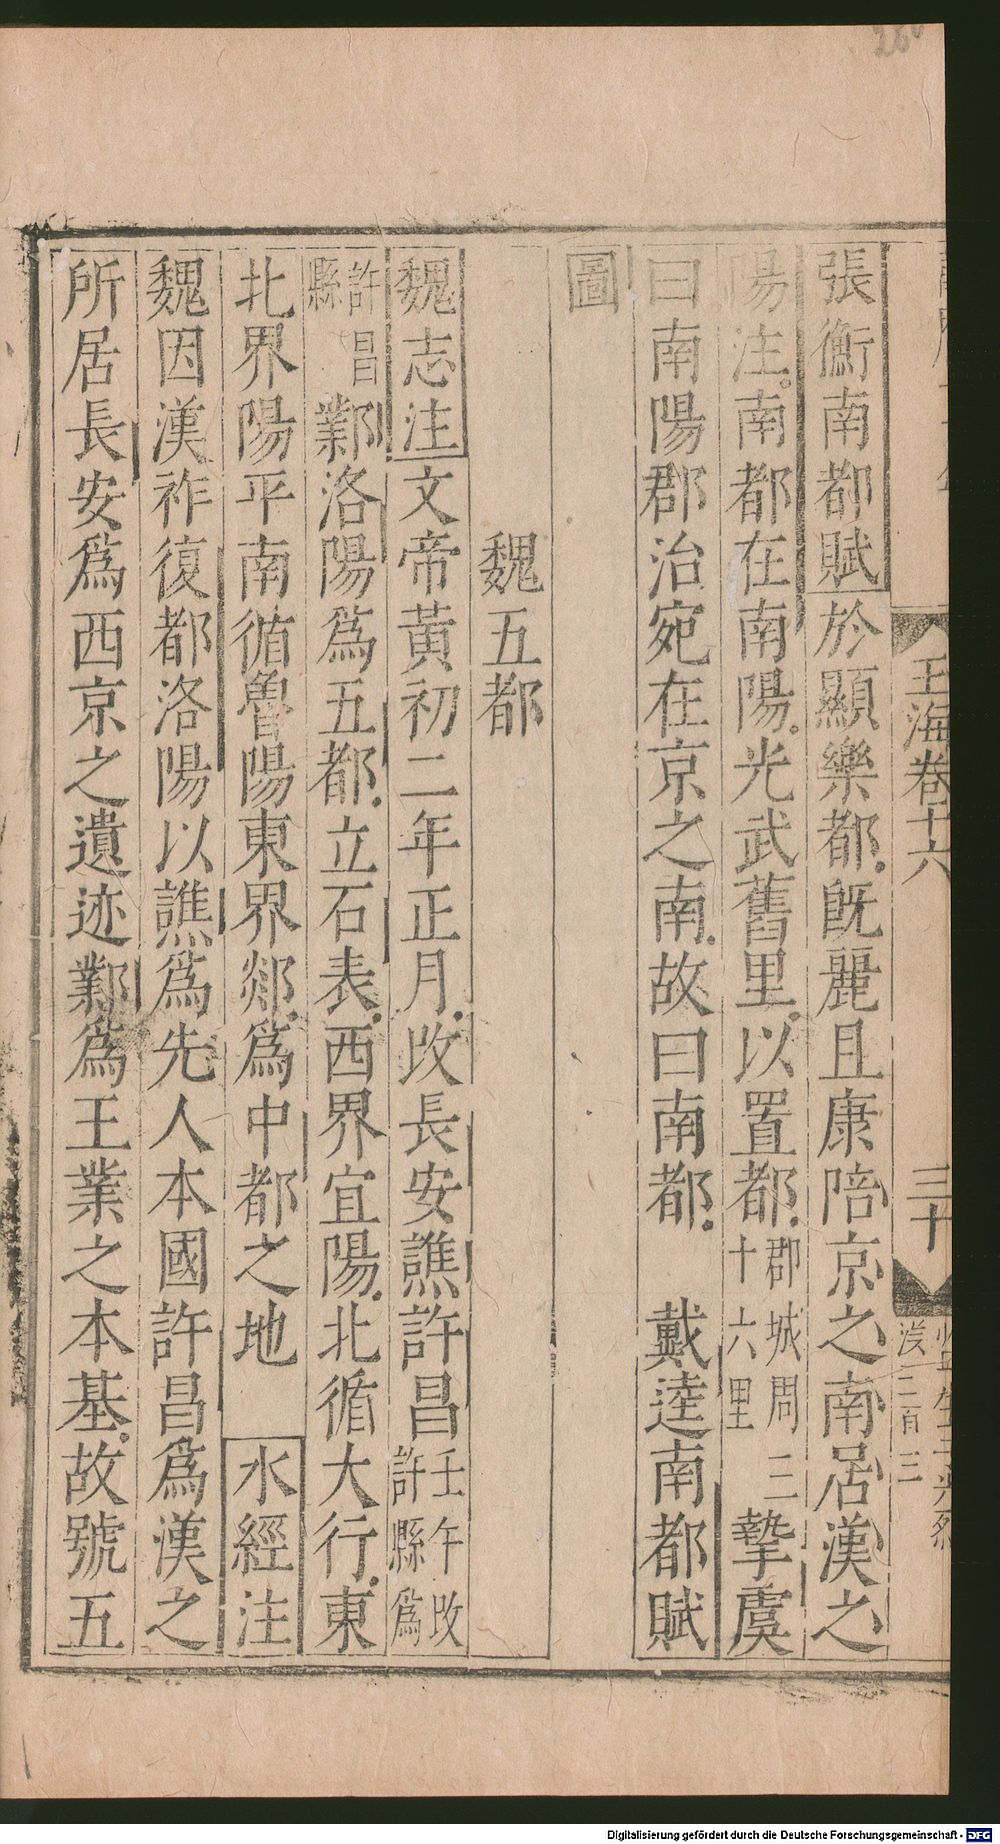 張衡南都賦於顯樂都既麗且康陪京之南居漢之
陽注南都在南陽光武舊里以置都郡城周三十六里摯虞
曰南陽郡治宛在京之南故曰南都 戴逵南都賦
圖
魏五都
魏志注文帝黃初二年正月攺長安譙許昌壬午攺許縣爲
許昌縣鄴洛陽爲五都立石表西界宜陽北循大行東
北界陽平南循魯陽東界郯爲中都之地 水經注
魏因漢祚復都洛陽以譙爲先人本國許昌爲漢之
所居長安爲西京之遺迹鄴爲王業之本基故號五
玉海卷十六
三十
Digitalisierung gefördert durch die Deutsche Forschungsgemeinschaft - DFG